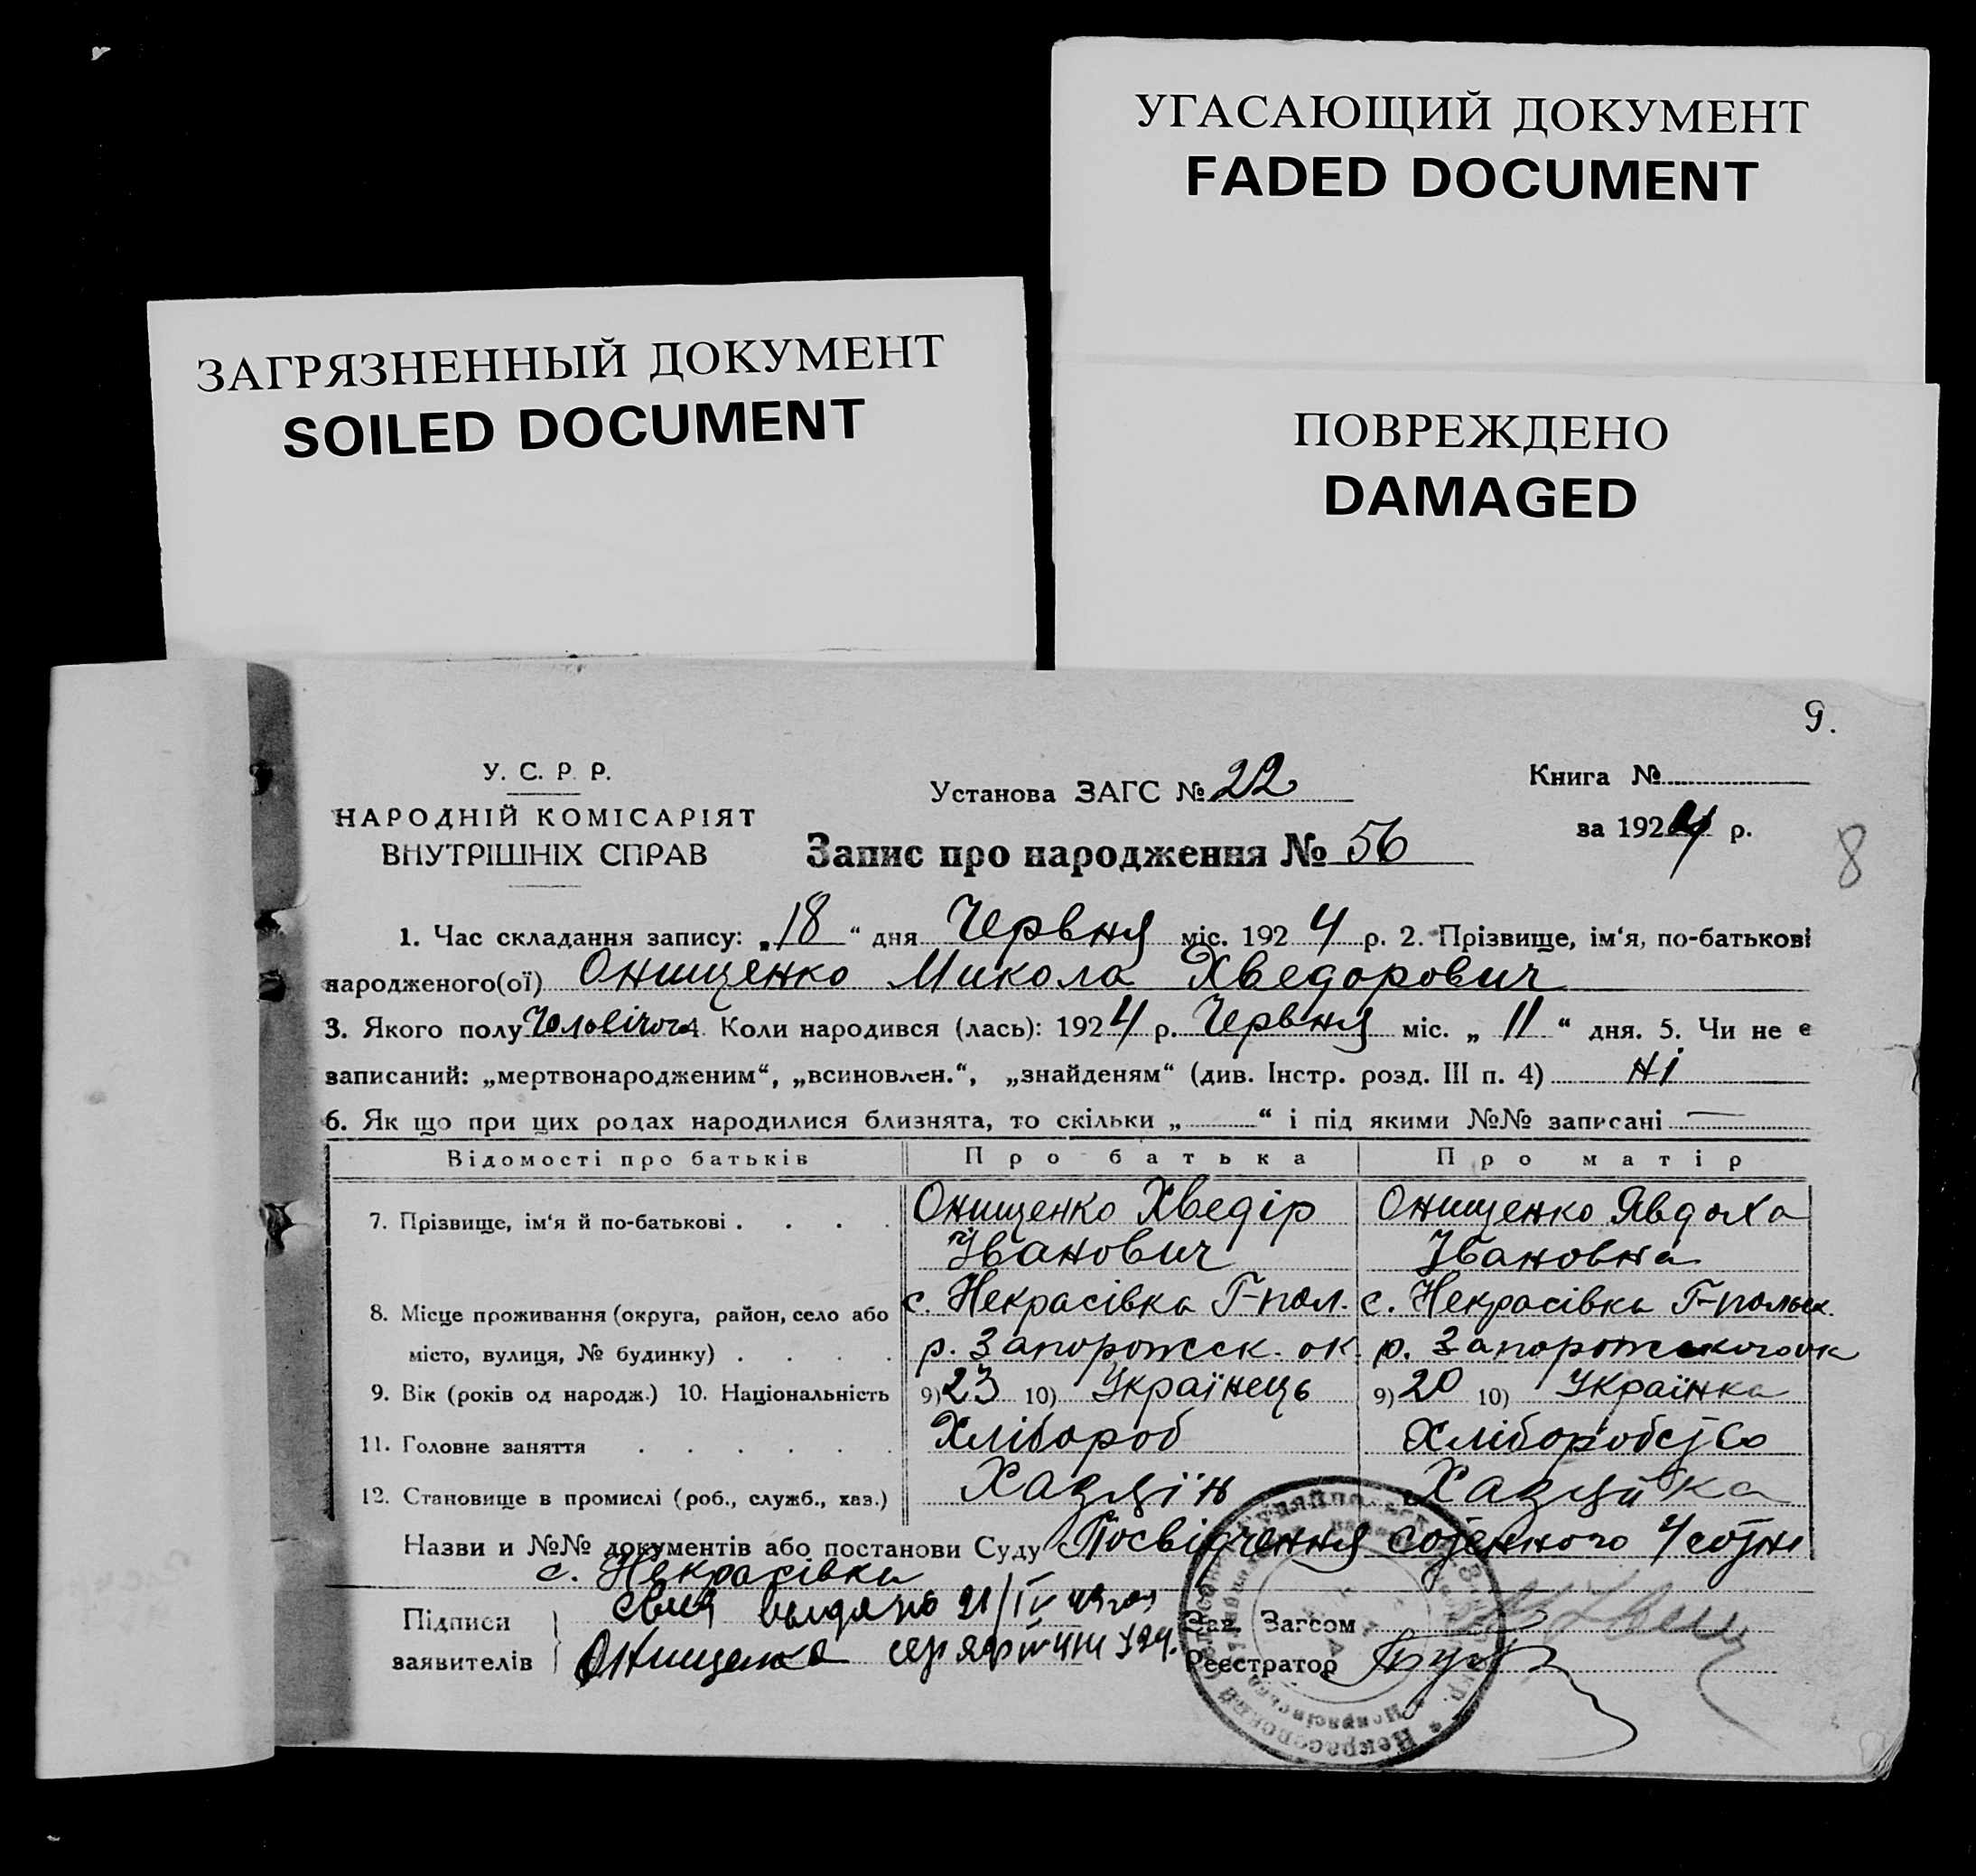 УГАСАЮЩИЙ ДОКУМЕНТ
FADED DOCUMENT
ЗАГРЯЗНЕННЫЙ ДОКУМЕНТ
SOILED DOCUMENT
ПОВРЕЖДЕНО
DAMAGED
9.
У. С. Р. Р.
НАРОДНІЙ КОМІСАРІЯТ
ВНУТРІШНІХ СПРАВ
Установа ЗАГС № 22
Запис про народження № 56
Книга №
за 1924 р.
8
1. Час складання запису: „18“ дня Червня міс. 1924 р. 2. Прізвище, ім‘я, по-батькові
народженого(ої) Онищенко Микола Хведорович
3. Якого полу Чоловічог 4. Коли народився (лась): 1924 р. Червня міс. „11“ дня. 5. Чи не є
записаний: „мертвонародженим“, „всиновлен.“, „знайденям“ (див. Інстр. розд. III п. 4) ні
6. Як що при цих родах народилися близнята, то скільки „ “ і під якими №№ записані —
Відомості про батьків Про батька Про матір
7. Прізвище, ім‘я й по-батькові . . . . Онищенко Хведір Онищенко Явдоха
Іванович Івановна
8. Місце проживання (округа, район, село або с. Некрасівка Г-пол. с. Некрасівка Г-польск.
місто, вулиця, № будинку) . . . . р. Запорожск. ок. р. Запорожского ок
9. Вік (років од народж.) 10. Національність 9) 23 10) Українець 9) 20 10) Українка
11. Головне заняття . . . . . . Хлібороб Хліборобство
12. Становище в промислі (роб., служб., хаз.) Хазяїн Хазяйка
Назви и №№ документів або постанови Суду Посвідчення сотенного 4 сотні
с. Некрасівка
Підписи
заявителів
Онищенко
Зав. Загсом
Реєстратор